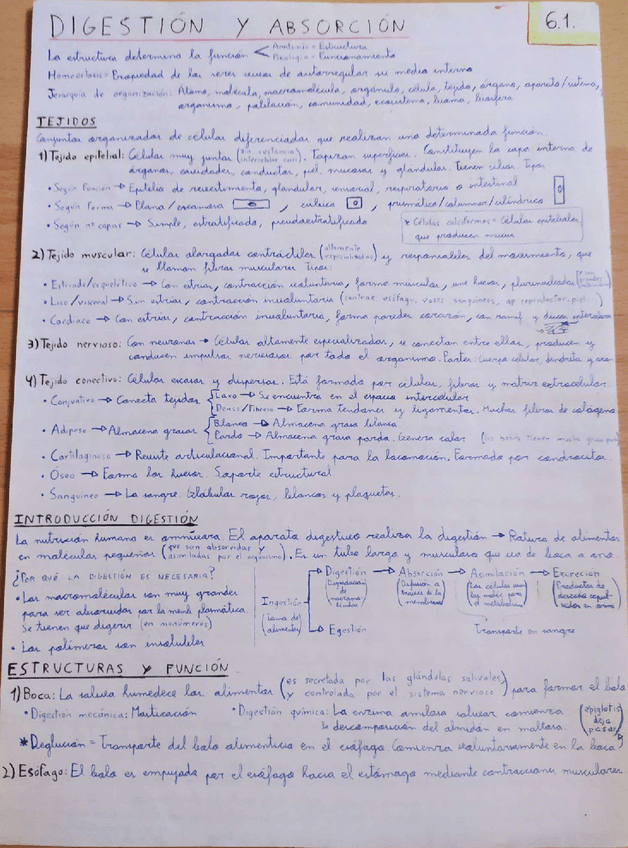 DIGESTIÓN Y ABSORCIÓN
6.1.
La estructura determina la función
Anatomía = Estructura
Fisiología = Funcionamiento
Homeostasis = Propiedad de los seres vivos de autorregular su medio interno
Jerarquía de organización: Átomo, molécula, macromolécula, orgánulo, célula, tejido, órgano, aparato/sistema,
organismo, población, comunidad, ecosistema, bioma, biosfera
TEJIDOS
Conjuntos organizados de células diferenciadas que realizan una determinada función.
1) Tejido epitelial: Células muy juntas (sin sustancia intercelular casi). Tapizan superficies. Constituyen la capa interna de
órganos, cavidades, conductos, piel, mucosas y glándulas. Tienen cilios. Tipos
• Según función → Epitelio de revestimiento, glandular, sensorial, respiratorio o intestinal
• Según forma → Plana/escamosa, cúbica, prismática/columnar/cilíndrica
• Según nº capas → Simple, estratificado, pseudoestratificado
* Células caliciformes = Células epiteliales
que producen mucus
2) Tejido muscular: Células alargadas contráctiles (altamente especializadas) y responsables del movimiento, que
se llaman fibras musculares. Tipos:
• Estriado/esquelético → Con estrías, contracción voluntaria, forma músculos, une huesos, plurinucleadas
• Liso/visceral → Sin estrías, contracción involuntaria (contrae esófago, vasos sanguíneos, ap reproductor, piel)
• Cardiaco → Con estrías, contracción involuntaria, forma paredes corazón, con ramif y discos intercalares
3) Tejido nervioso: Con neuronas → Células altamente especializadas, se conectan entre ellas, producen y
conducen impulsos nerviosos por todo el organismo. Partes: Cuerpo celular, dendrita y axón
4) Tejido conectivo: Células escasas y dispersas. Está formado por células, fibras y matriz extracelular.
• Conjuntivo → Conecta tejidos
Laxo → Se encuentra en el espacio intercelular
Denso/Fibroso → Forma tendones y ligamentos. Muchas fibras de colágeno
• Adiposo → Almacena grasas
Blanco → Almacena grasa blanca
Pardo → Almacena grasa parda. Genera calor (los bebés tienen mucha grasa parda)
• Cartilaginoso → Reviste articulaciones. Importante para la locomoción. Formado por condrocitos.
• Óseo → Forma los huesos. Soporte estructural
• Sanguíneo → La sangre. Glóbulos rojos, blancos y plaquetas.
INTRODUCCIÓN DIGESTIÓN
La nutrición humana es omnívora. El aparato digestivo realiza la digestión → Rotura de alimentos
en moléculas pequeñas (que son absorbidas y asimiladas por el organismo). Es un tubo largo y musculoso que va de boca a ano.
¿POR QUÉ LA DIGESTIÓN ES NECESARIA?
• Las macromoléculas son muy grandes
para ser absorbidas por la memb plasmática.
Se tienen que digerir (en monómeros)
• Los polímeros son insolubles
Ingestión (Toma de alimentos)
→ Digestión → Absorción → Asimilación → Excreción
→ Egestión
Transporte en sangre
ESTRUCTURAS Y FUNCIÓN
1) Boca: La saliva humedece los alimentos (es secretada por las glándulas salivales y controlada por el sistema nervioso) para formar el bolo
• Digestión mecánica: Masticación
• Digestión química: La enzima amilasa salivar comienza
la descomposición del almidón en maltosa.
(epiglotis deja pasar)
* Deglución = Transporte del bolo alimenticio en el esófago (Comienza voluntariamente en la boca)
2) Esófago: El bolo es empujado por el esófago hacia el estómago mediante contracciones musculares